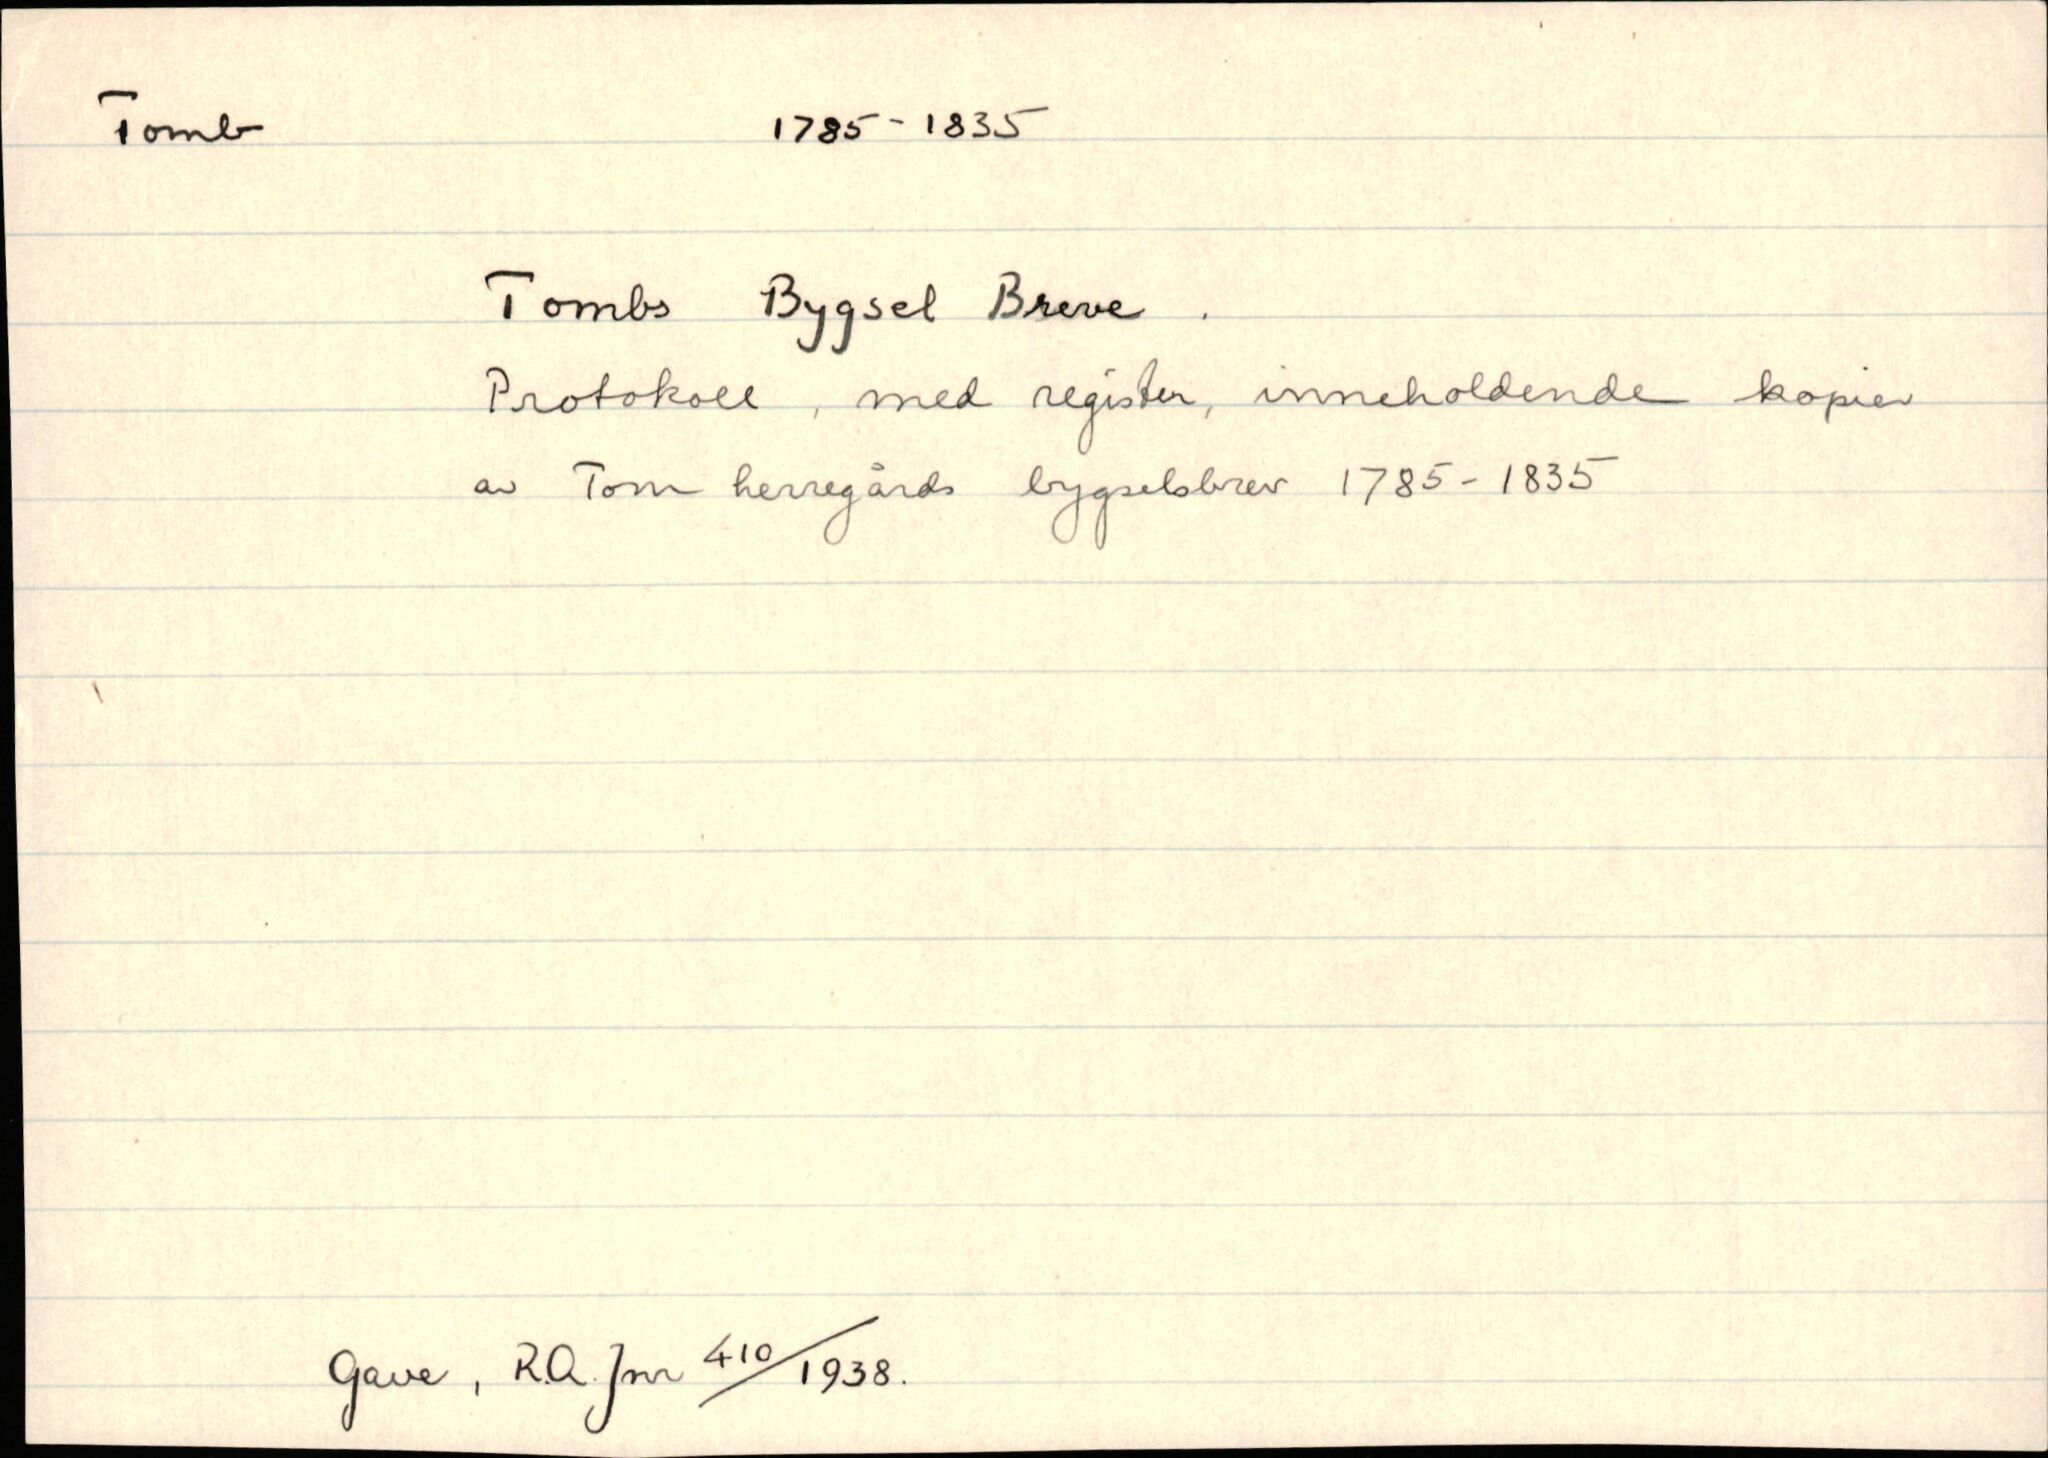 Tomb 1785-1835
Tombs Bygsel Breve.
Protokoll, med register, inneholdende kopier
av Tom herregårds bygselsbrev 1785-1835
Gave, R.A. Jnr 410/1938.